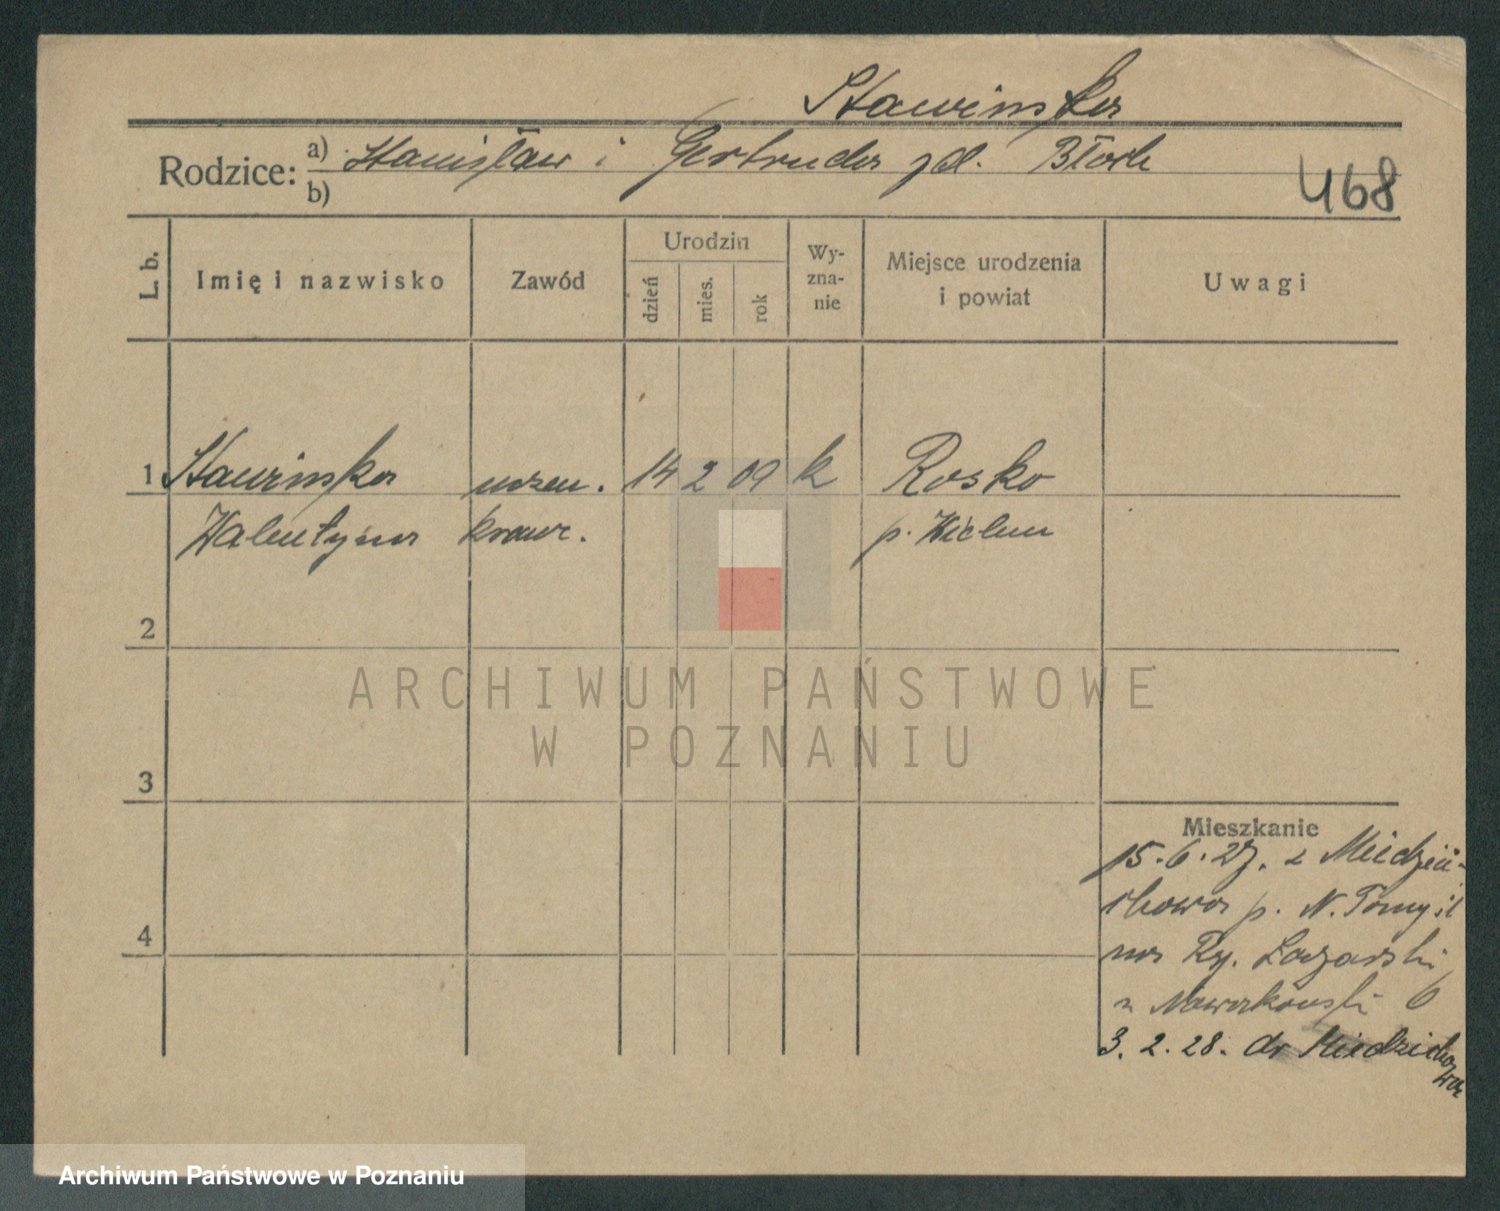 Stawinska
Rodzice: a) Stanisław i Gertruda zd. Błoch
b)
468
L. b.
Imię i nazwisko
Zawód
Urodzin
dzień
mies.
rok
Wy-
zna-
nie
Miejsce urodzenia
i powiat
Uwagi
1 Stawinska uczen. 14 2 09 k Rosko
Walentyna kraw. p. Wielen
2
ARCHIWUM PAŃSTWOWE
W POZNANIU
3
Mieszkanie
15.6.27. z Miedzi-
chowa p. N. Tomyśl
na Ry. Łazarski
u Nawrkowski 6
4
3. 2. 28. do Miedzicho
wa
Archiwum Państwowe w Poznaniu